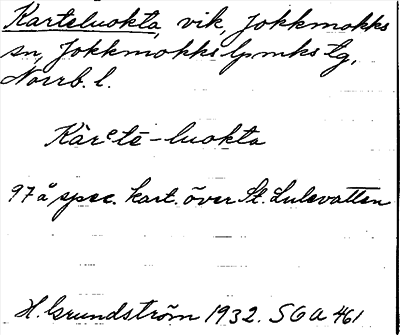 Karteluokta, vik, Jokkmokks
sn, Jokkmokks lpmks tg,
Norrb. l.
Kàrᶜtē-luokta
97 å spec. kart. över St. Lulevatten
H. Grundström 1932. SOA 461